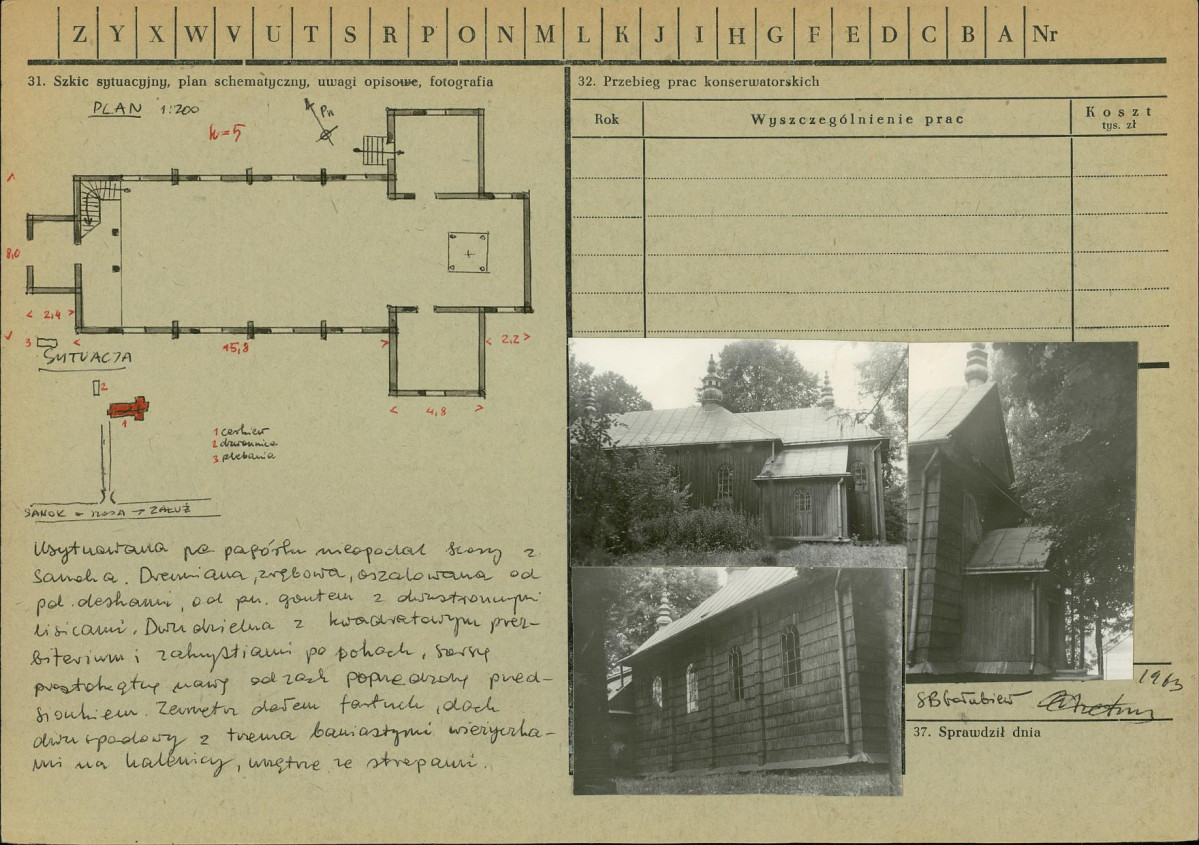 Z Y X W V U T S R P O N M L K J I H G F E D C B A Nr
31. Szkic sytuacyjny, plan schematyczny, uwagi opisowe, fotografia
PLAN 1:200
h=5
Pn
8,0
2,4
15,8
2,2
4,8
3
SYTUACJA
2
1
1 cerkiew
2 dzwonnica
3 plebania
SANOK ZAŁUŻ
Usytuowana na pagórku nieopodal szosy z
Sanoka. Drewniana, zrębowa, oszalowana od
pd. deskami, od pn. gontem z dwustronnymi
lisicami. Dwudzielna z kwadratowym prez-
biterium i zakrystiami po bokach, szerszą
prostokątną nawą od zach poprzedzoną przed-
sionkiem. Zewnątrz dołem fartuch, dach
dwuspadowy z trzema baniastymi wieżyczka-
mi na kalenicy, wnętrze ze stropami.
32. Przebieg prac konserwatorskich
Rok Wyszczególnienie prac Koszt
tys. zł
1963
37. Sprawdził dnia